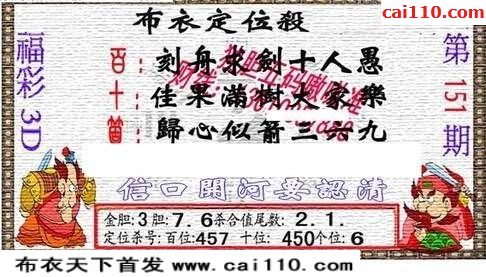 cai110.com
布衣定位殺
福彩3D
第151期
百：刻舟求劍十人愚
十：佳果滿樹大家樂
箇：歸心似箭三六九
信口開河要認清
金胆:3胆:7.6杀合值尾数: 2.1.
定位杀号:百位:457 十位: 450个位:6
布衣天下首发 www.cai110.com